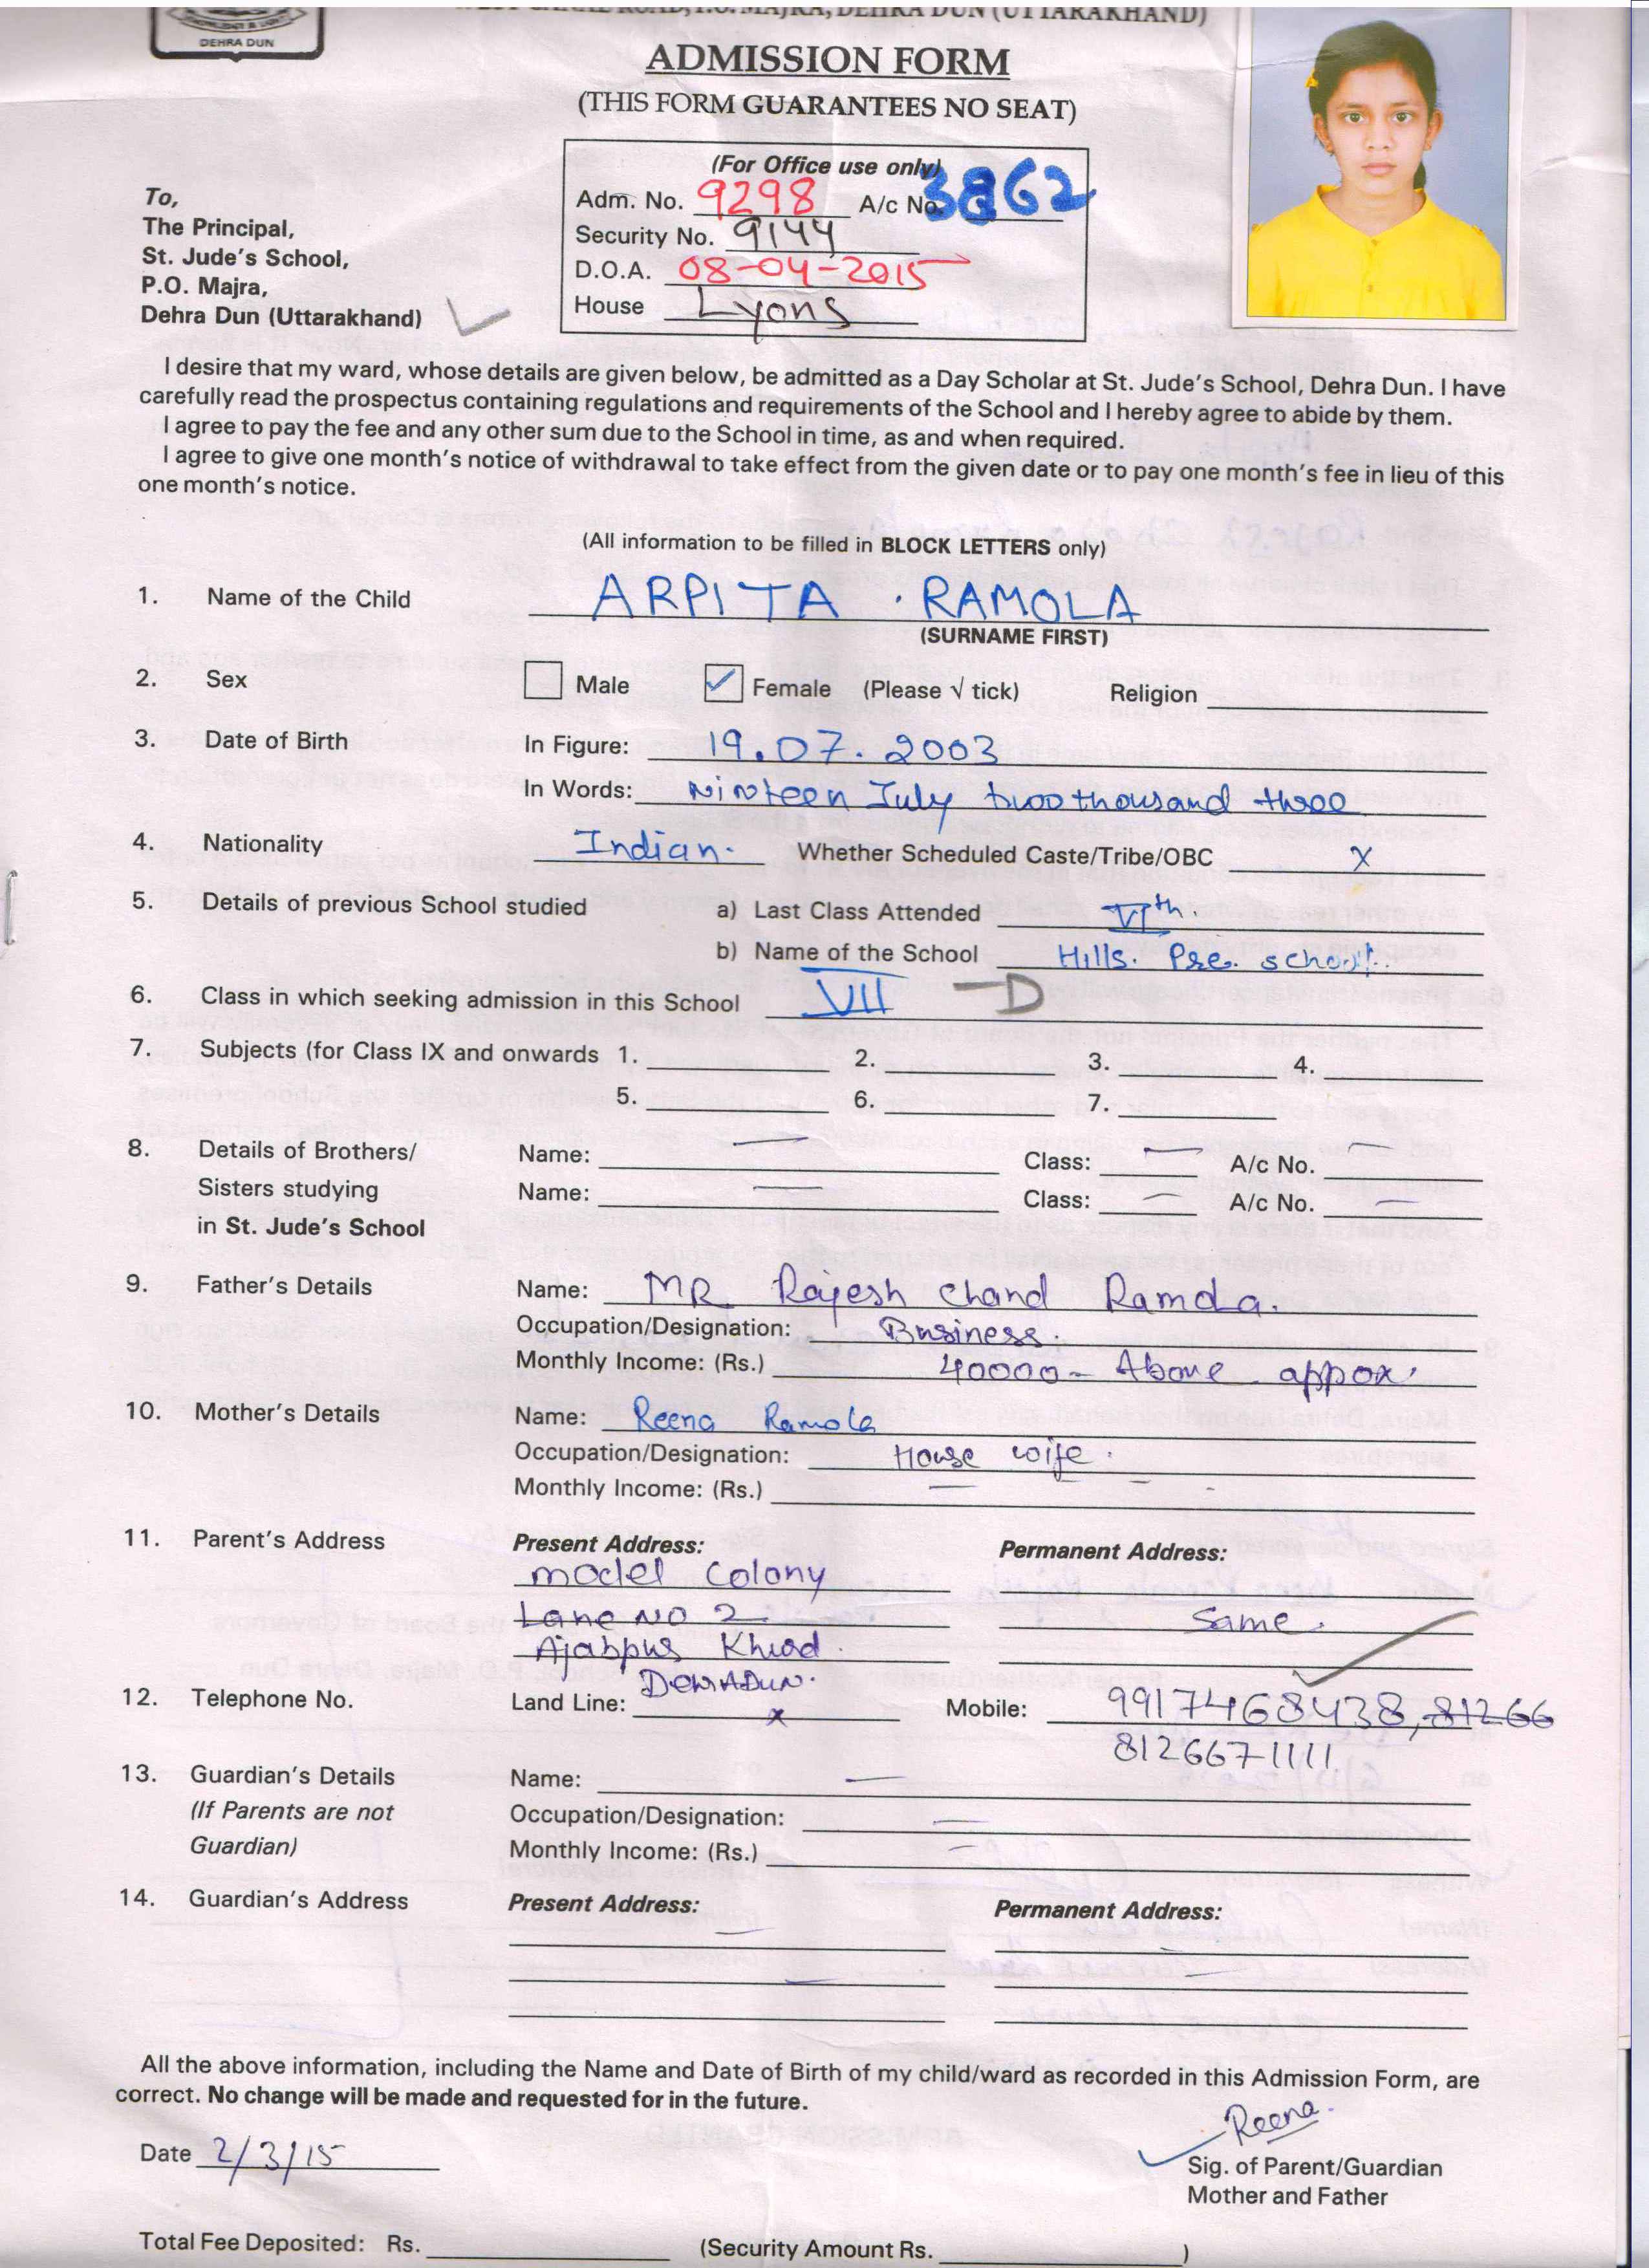 WEST CANAL ROAD, P.O. MAJRA, DEHRA DUN (UTTARAKHAND)
DEHRA DUN
ADMISSION FORM
(THIS FORM GUARANTEES NO SEAT)
(For Office use only)
Adm. No. 9298 A/c No. 3862
Security No. 9144
D.O.A. 08-04-2015
House Lyons
To,
The Principal,
St. Jude's School,
P.O. Majra,
Dehra Dun (Uttarakhand)
I desire that my ward, whose details are given below, be admitted as a Day Scholar at St. Jude's School, Dehra Dun. I have
carefully read the prospectus containing regulations and requirements of the School and I hereby agree to abide by them.
I agree to pay the fee and any other sum due to the School in time, as and when required.
I agree to give one month's notice of withdrawal to take effect from the given date or to pay one month's fee in lieu of this
one month's notice.
(All information to be filled in BLOCK LETTERS only)
1. Name of the Child ARPITA . RAMOLA
(SURNAME FIRST)
2. Sex Male Female (Please √ tick) Religion
3. Date of Birth In Figure: 19.07.2003
In Words: Ninteen July two thousand three
4. Nationality Indian. Whether Scheduled Caste/Tribe/OBC X
5. Details of previous School studied a) Last Class Attended VIth.
b) Name of the School Hills. Pre. school.
6. Class in which seeking admission in this School VII - D
7. Subjects (for Class IX and onwards 1. 2. 3. 4.
5. 6. 7.
8. Details of Brothers/ Name: — Class: — A/c No. —
Sisters studying Name: — Class: — A/c No. —
in St. Jude's School
9. Father's Details Name: MR Rajesh Chand Ramola.
Occupation/Designation: Business.
Monthly Income: (Rs.) 40000 - Above appox.
10. Mother's Details Name: Reena Ramola
Occupation/Designation: House wife.
Monthly Income: (Rs.) — -
11. Parent's Address Present Address: Permanent Address:
model Colony
Lane NO 2 Same.
Ajabpur Khurd.
DEHRADUN.
12. Telephone No. Land Line: x Mobile: 9917468438, 81266
8126671111.
13. Guardian's Details Name: —
(If Parents are not Occupation/Designation: —
Guardian) Monthly Income: (Rs.) —
14. Guardian's Address Present Address: Permanent Address:
All the above information, including the Name and Date of Birth of my child/ward as recorded in this Admission Form, are
correct. No change will be made and requested for in the future.
Reena.
Date 2/3/15
Sig. of Parent/Guardian
Mother and Father
Total Fee Deposited: Rs. (Security Amount Rs. )